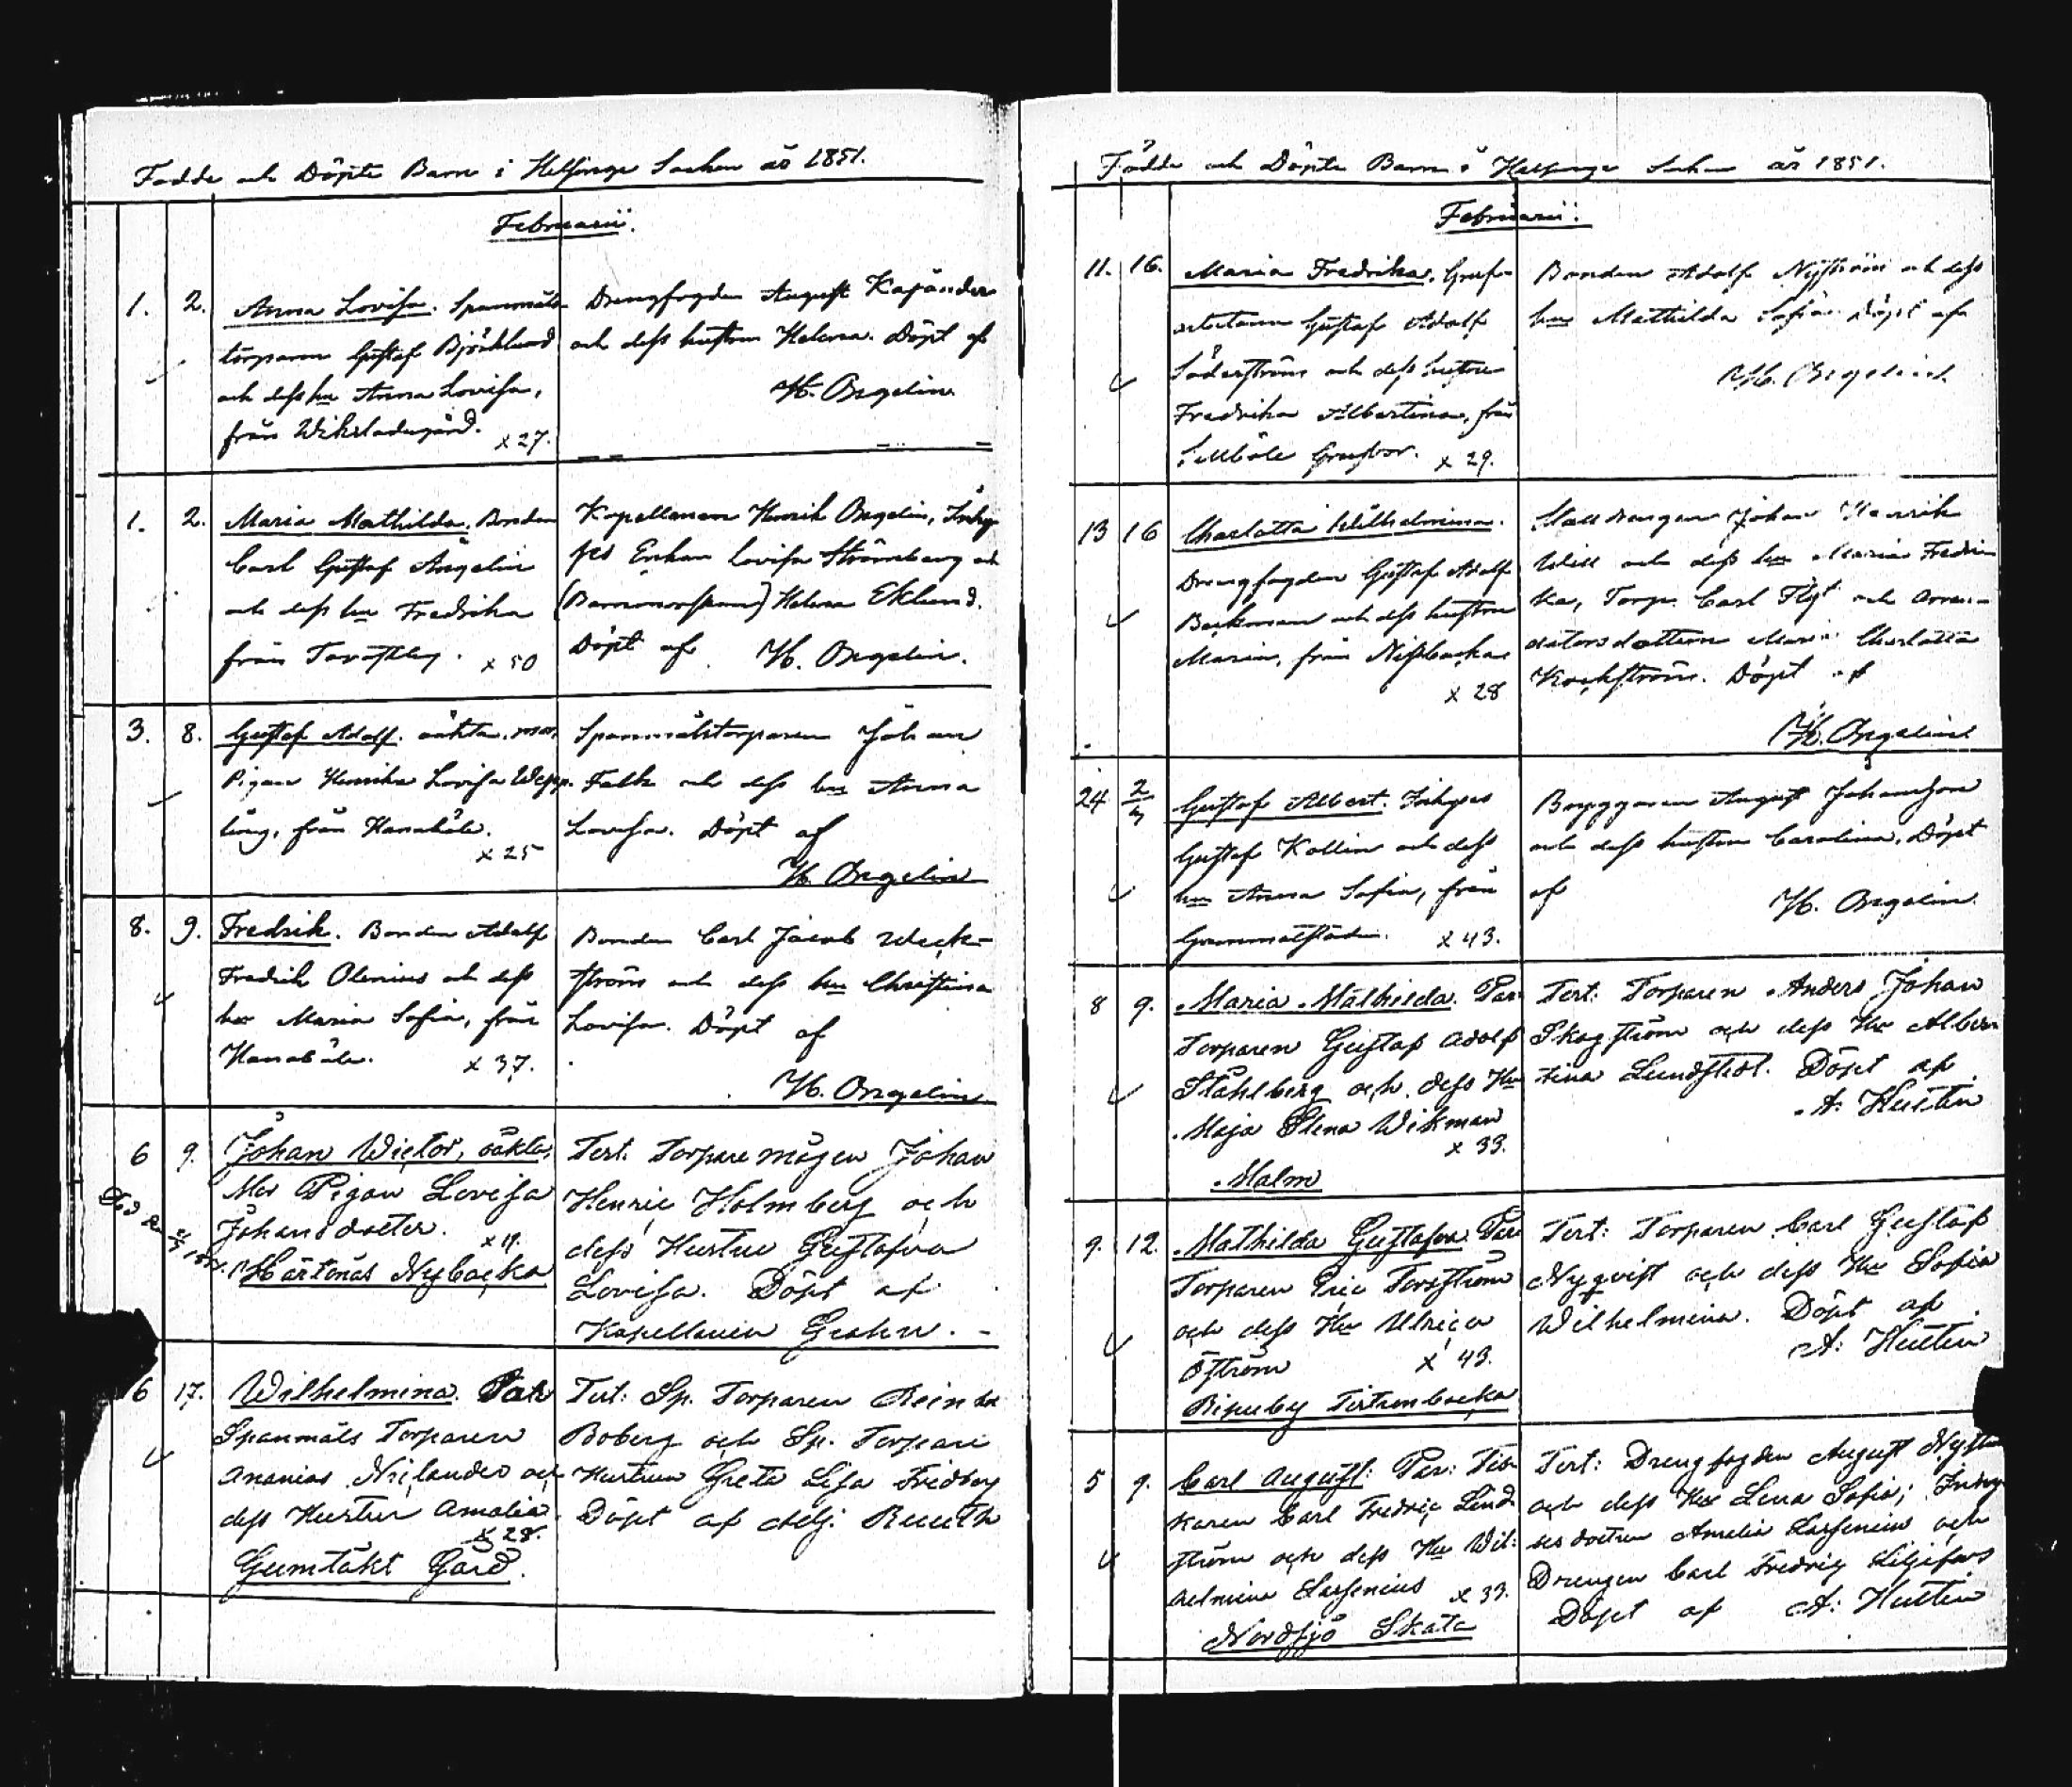 Födde och Döpte Barn i Helsinge Socken år 1851.
Februarii.
1. 2. Anna Lovisa. Spannmåls-
torparen Gustaf Björklund
och dess hu Anna Lovisa,
från Wiksladugård. x 27.
Drengfogden August Kajander
och dess hustru Helena. Döpt af
H. Bergelin.
1. 2. Maria Mathilda. Bonden
Carl Gustaf Ängelin
och dess hu Fredrika
från Tavastby. x 50
Kapellanen Henrik Bergelin, Inhy-
ses Enkan Lovisa Strömberg och
(Barnmorskan) Helena Eklund.
Döpt af H. Bergelin.
3. 8. Gustaf Adolf. oäkta. mor,
Pigan Henrika Lovisa Wepp-
ling, från Hanaböle.
x 25
Spannmålstorparen Johan
Falk och dess hu Anna
Lovisa. Döpt af
H. Bergelin
8. 9. Fredrik. Bonden Adolf
Fredrik Olenius och dess
hu Maria Sofia, från
Hanaböle. x 37.
Bonden Carl Jacob Weck-
ström och dess hu Christina
Lovisa. Döpt af
H. Bergelin
6 9. Johan Wictor, oäkta,
Mor Pigan Lovisa
Johansdotter. x 19.
Mårtenss Nybacka
Död den
Test. Torparemågen Johan
Henric Holmberg och
dess Hustru Gustafva
Lovisa. Döpt af
Kapellanen Grahn.
6 17. Wilhelmina. Par
Spanmåls Torparen
Ananias Nielander och
dess Hustru Amalia
x 28.
Gumtäkt Gård.
Test: Sp. Torparen Reinh.
Boberg och Sp. Torpare
Hustrun Greta Lisa Fredberg
Döpt af Adj. Reuth
Födde och Döpte Barn i Helsinge Socken år 1851.
Februarii.
11. 16. Maria Fredrika. Gruf-
arbetaren Gustaf Adolf
Söderström och dess hustru
Fredrika Albertina, från
Sillböle Grufvor. x 29.
Bonden Adolf Nyström och dess
hu Mathilda Sofia. Döpt af
H. Bergelin.
13 16 Charlotta Wilhelmina.
Drengfogden Gustaf Adolf
Backman och dess hustru
Maria, från Nissbacka
x 28
Stalldrengen Johan Henrik
Will och dess hu Maria Fredri-
ka, Torp. Carl Flyt och Arren-
datorsdottern Maria Charlotta
Kockström. Döpt af
H. Bergelin
24 2/3 Gustaf Albert. Inhyses
Gustaf Kollin och dess
hu Anna Sofia, från
x 43.
Bryggaren August Johansson
och dess hustru Carolina. Döpt
af H. Bergelin.
8 9. Maria Mathilda. Par
Torparen Gustaf Adolf
Ståhlberg och dess Hu
Maja Stena Wikman
x 33.
Malm
Test: Torparen Anders Johan
Skogström och dess Hu Alber-
tina Lundstedt. Döpt af
A: Huttin
9. 12. Mathilda Gustafva. Par
Torparen Eric Forsström
och dess Hu Ulrica
Öström x 43.
Ripuby
Test: Torparen Carl Gustaf
Nyqvist och dess Hu Sofia
Wilhelmina. Döpt af
A: Huttin
5 9. Carl August: Par: Fis-
karen Carl Fredric Lind-
ström och dess Hu Wil-
helmina Larsenius x 33.
Nordsjö Skata
Test: Drengfogden August Nyst
och dess Hu Lena Sofia; Inhy-
ses dottren Amalia Larsenius och
Drengen Carl Fredric Liljefors
Döpt af A: Huttin